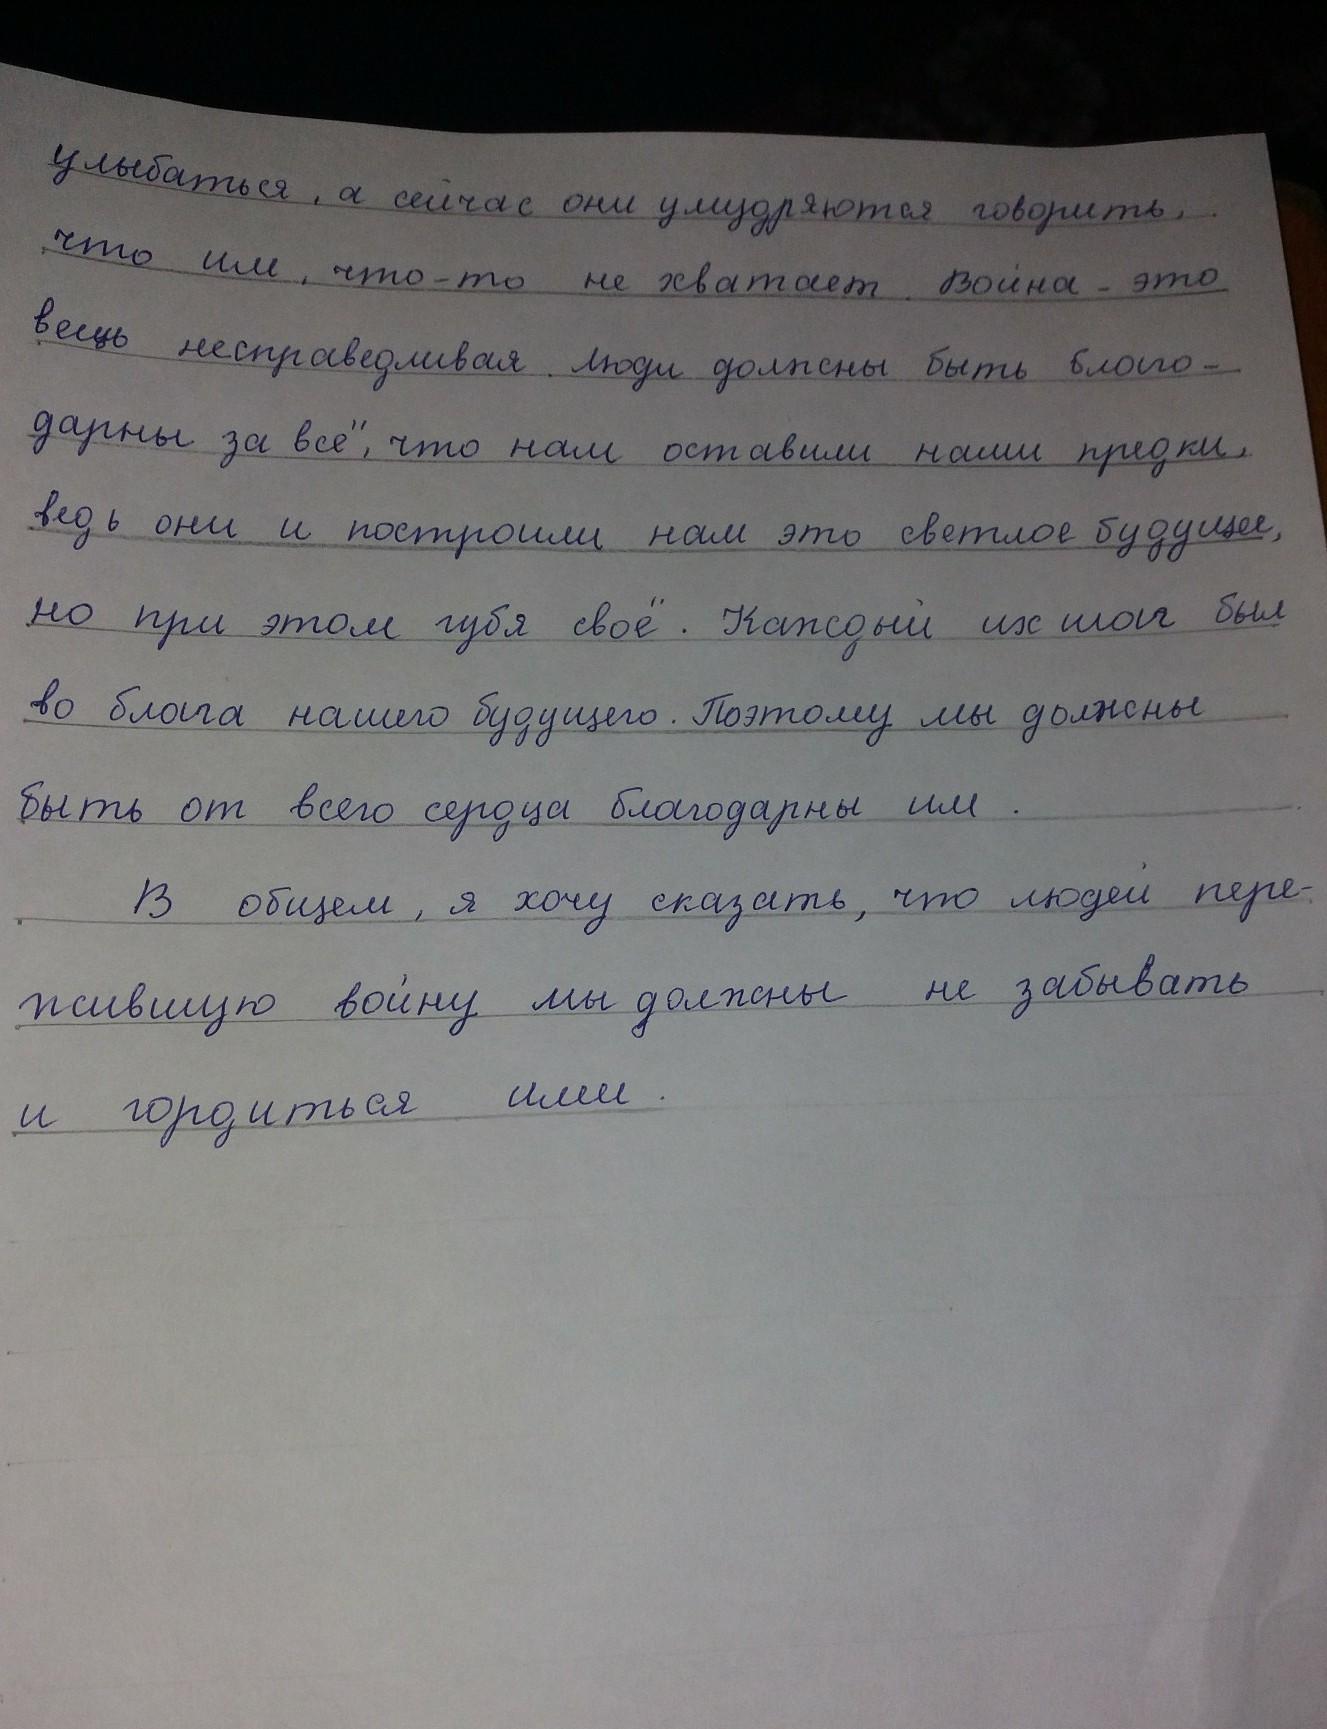 улыбаться, а сейчас они умудряются говорить,
что им, что-то не хватает. Война - это
вещь несправедливая. Люди должны быть благо-
дарны за всё, что нам оставили наши предки,
ведь они и построили нам это светлое будущее,
но при этом губя своё. Каждый их шаг был
во блага нашего будущего. Поэтому мы должны
быть от всего сердца благодарны им.
В общем, я хочу сказать, что людей пере-
жившую войну мы должны не забывать
и гордиться ими.